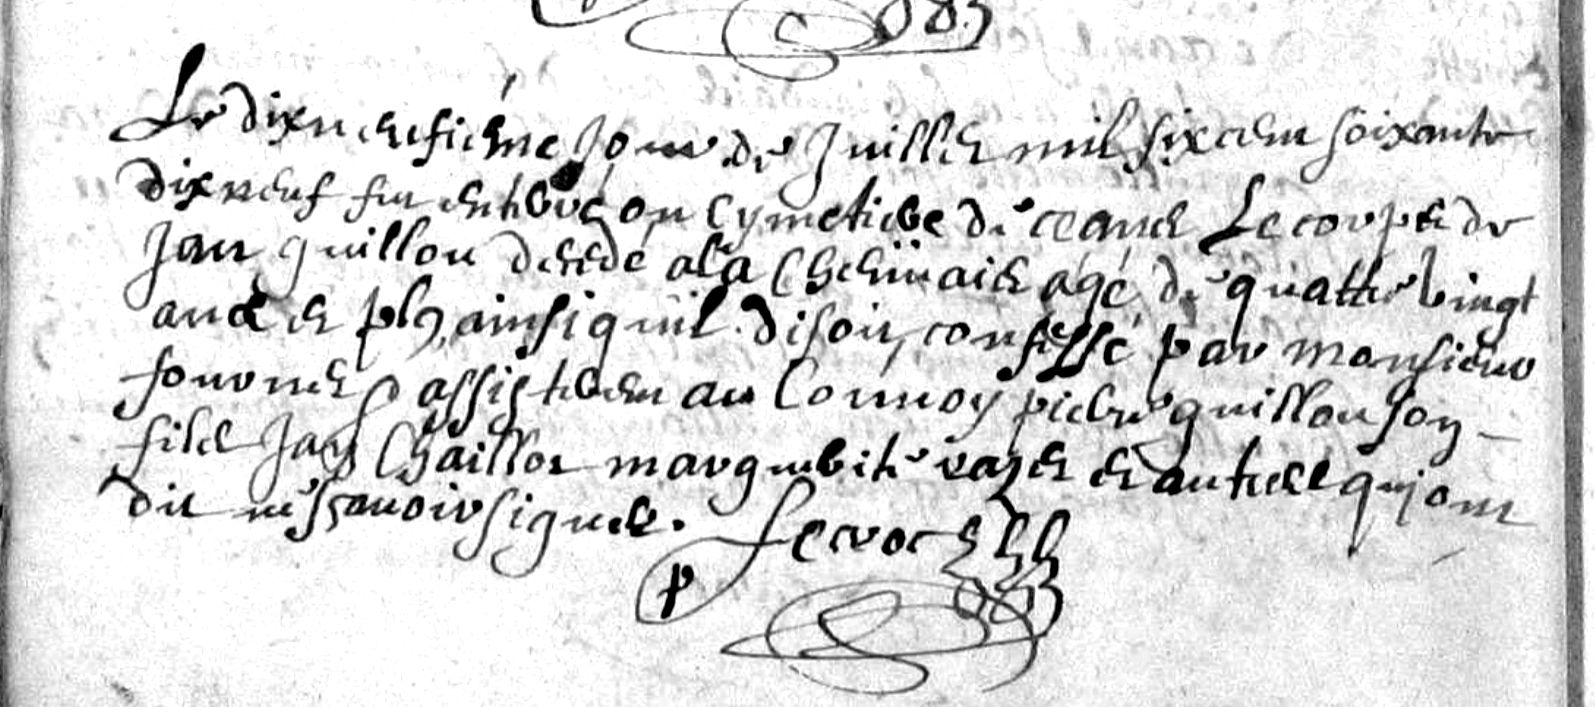 Le dix neufiéme jour de Juillet mil six cent soixante
dix neuf fut enterré on cymetiere de ceans Le corps de
Jan guillou decedé a la agé de quattre vingt
ans et plus ainsi quil disoit, confessé par monsieur
assisterent au convoy pierre guillou son
fils Jan Chaillou margueritte et autres qui ont
dit ne sçavoir signer.
P